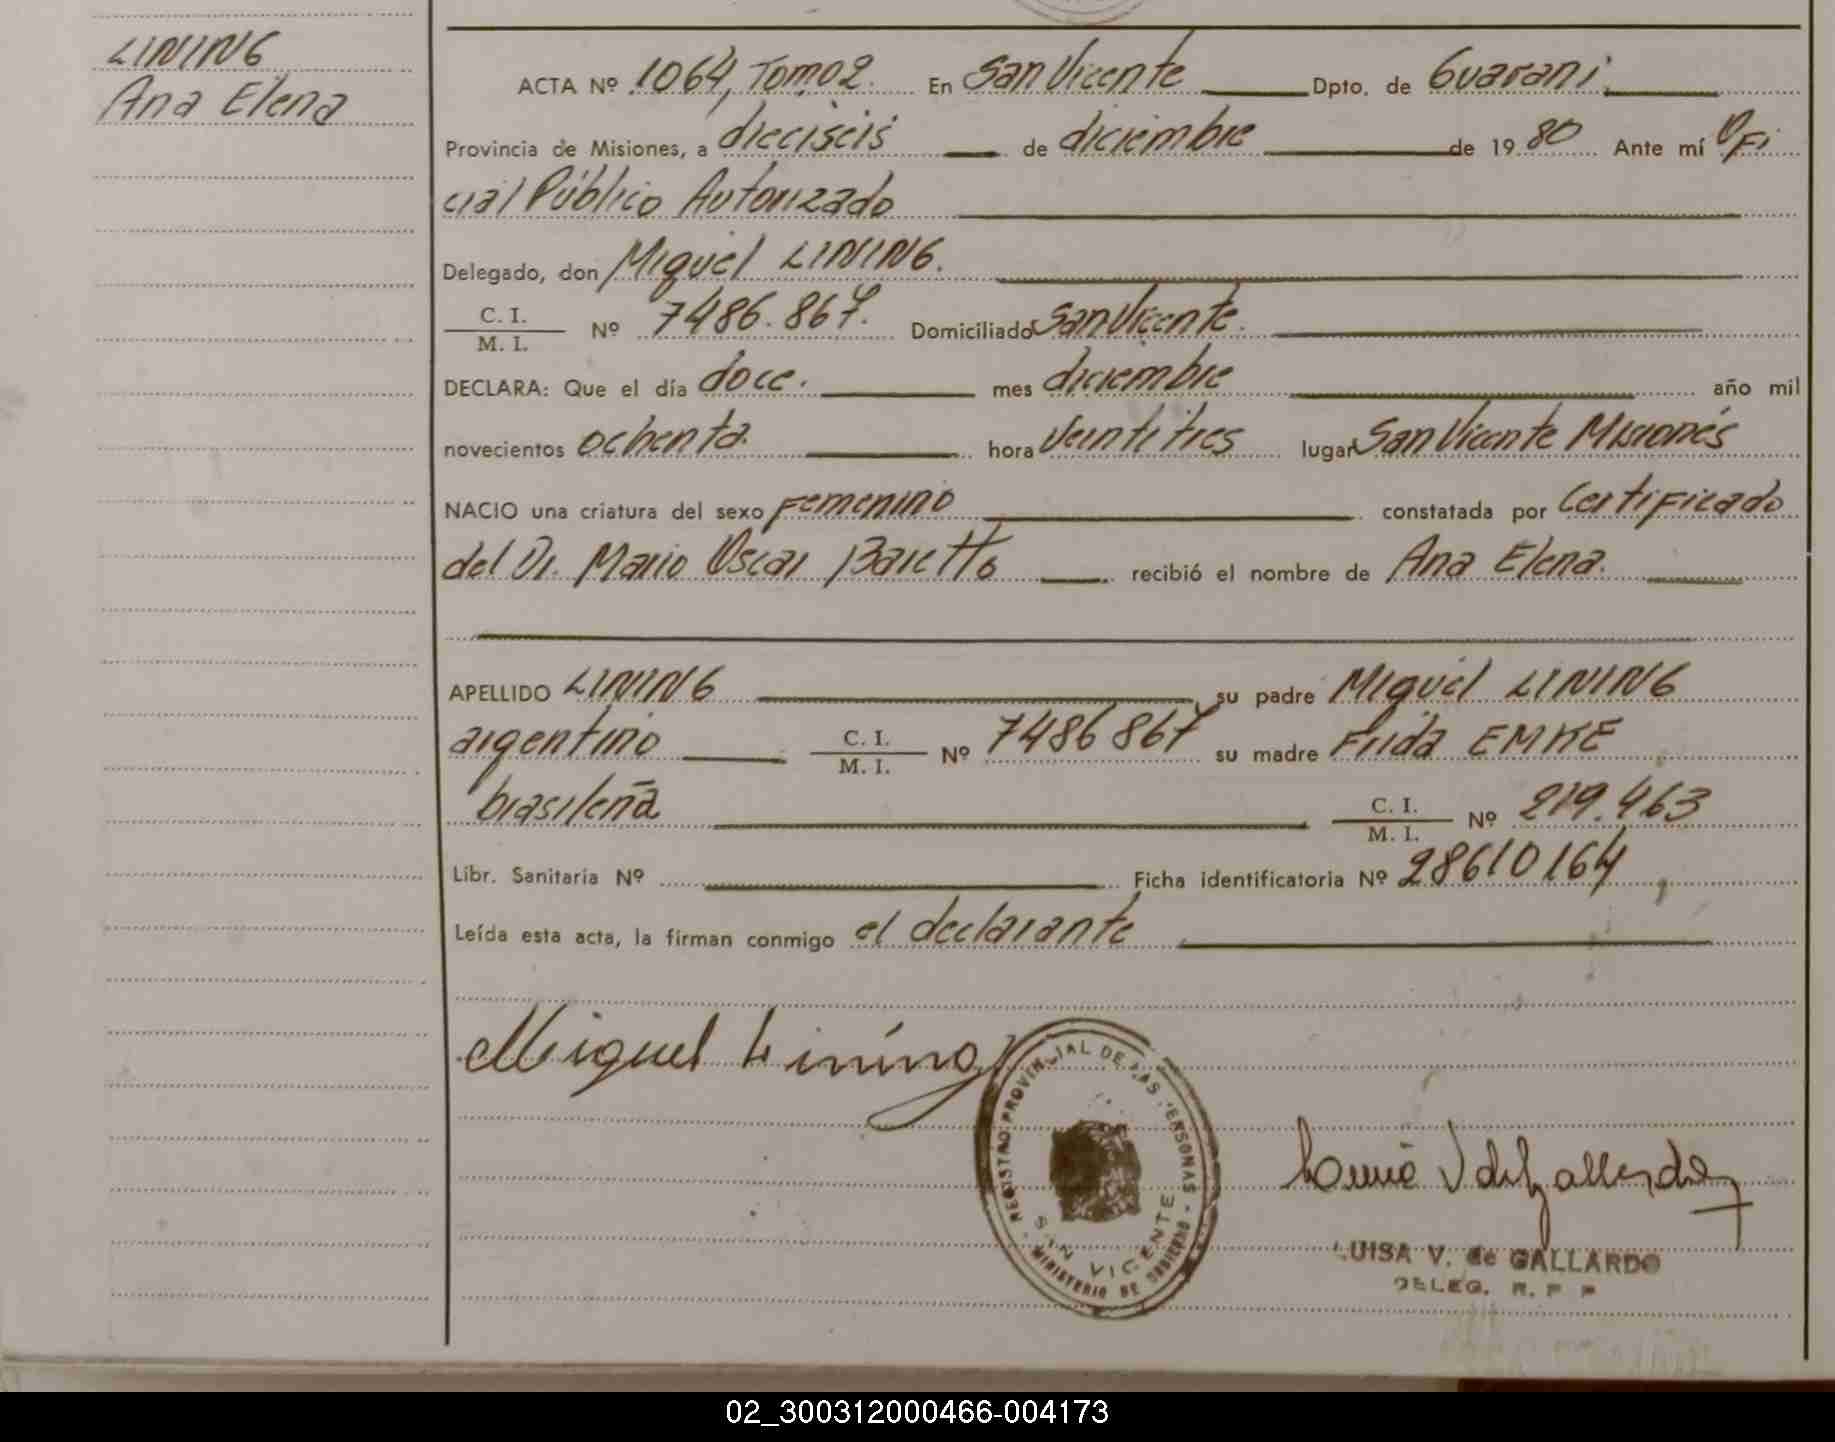 LINING
Ana Elena
ACTA Nº 1064, Tomo 2. En San Vicente Dpto. de Guarani
Provincia de Misiones, a dieciseis de diciembre de 1980 Ante mí Ofi
cial Público Autorizado
Delegado, don Miguel LINING.
C. I.
M. I. Nº 7486.867. Domiciliado San Vicente.
DECLARA: Que el día doce. mes diciembre año mil
novecientos ochenta hora veintitres lugar San Vicente Misiones
NACIO una criatura del sexo Femenino constatada por Certificado
del Dr. Mario Oscar Baretto recibió el nombre de Ana Elena.
APELLIDO LINING su padre Miguel LINING
argentino C. I.
M. I. Nº 7486867 su madre Frida EMKE
brasileña C. I.
M. I. Nº 219.463
Libr. Sanitaria Nº Ficha identificatoria Nº 28610164
Leída esta acta, la firman conmigo el declarante
Miguel Lining
REGISTRO PROVINCIAL DE LAS PERSONAS - MINISTERIO DE GOBIERNO -
SAN VICENTE
LUISA V. de GALLARDO
DELEG. R. P. P
02_300312000466-004173